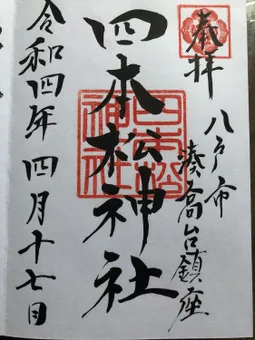 奉拝
八戸市
湊高台鎮座
四本松神社
四本松
神社
令和四年四月十七日